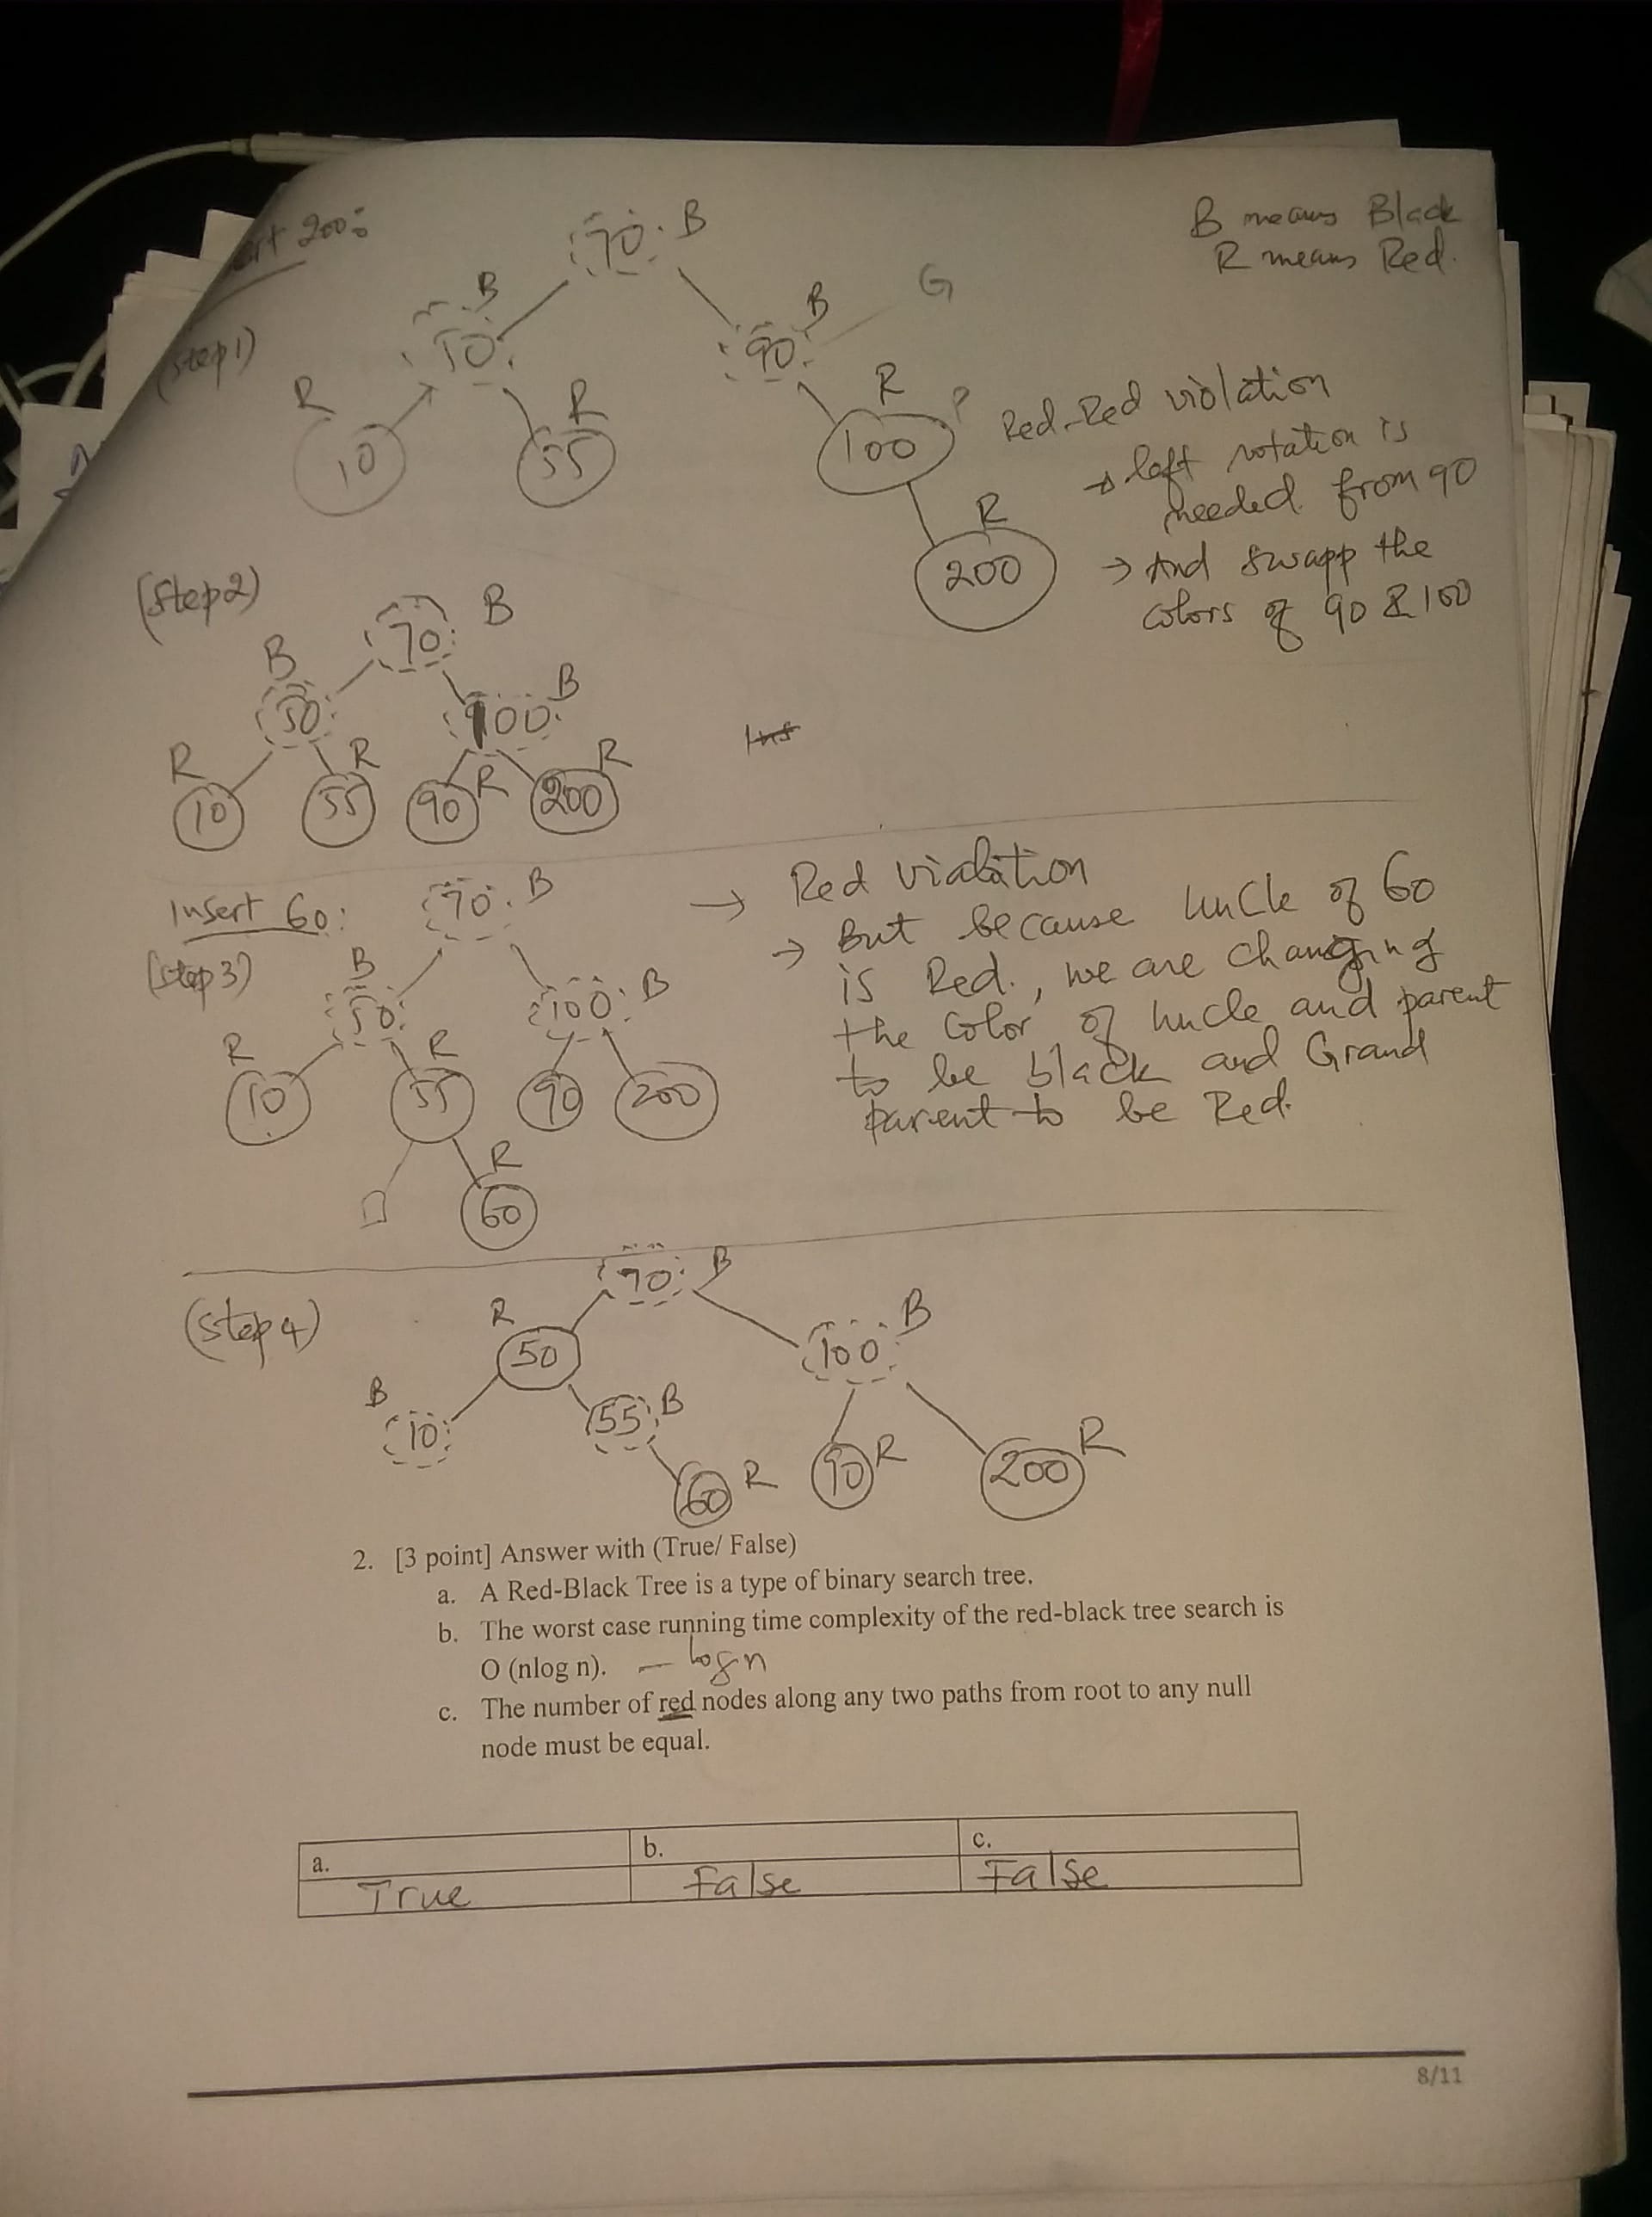 ert 200:
B means Black
R means Red.
(Step1)
70 B
B
50
B
90
G
R
10
R
55
R
100
P
R
200
Red-Red violation
→ left rotation is
needed from 90
→ And swapp the
colors of 90 & 100
(Step2)
70 B
B
50
100 B
R
10
R
55
90 R
200 R
Insert 60:
(Step3)
70 B
B
50
100 B
R
10
R
55
90
200
R
60
→ Red violation
→ But because uncle of 60
is Red., we are changing
the color of uncle and parent
to be black and Grand
parent to be Red.
(Step4)
70 B
R
50
100 B
B
10
55 B
60 R
90 R
200 R
2. [3 point] Answer with (True/ False)
a. A Red-Black Tree is a type of binary search tree.
b. The worst case running time complexity of the red-black tree search is
O (nlog n). — logn
c. The number of red nodes along any two paths from root to any null
node must be equal.
a. b. c.
True False False
8/11